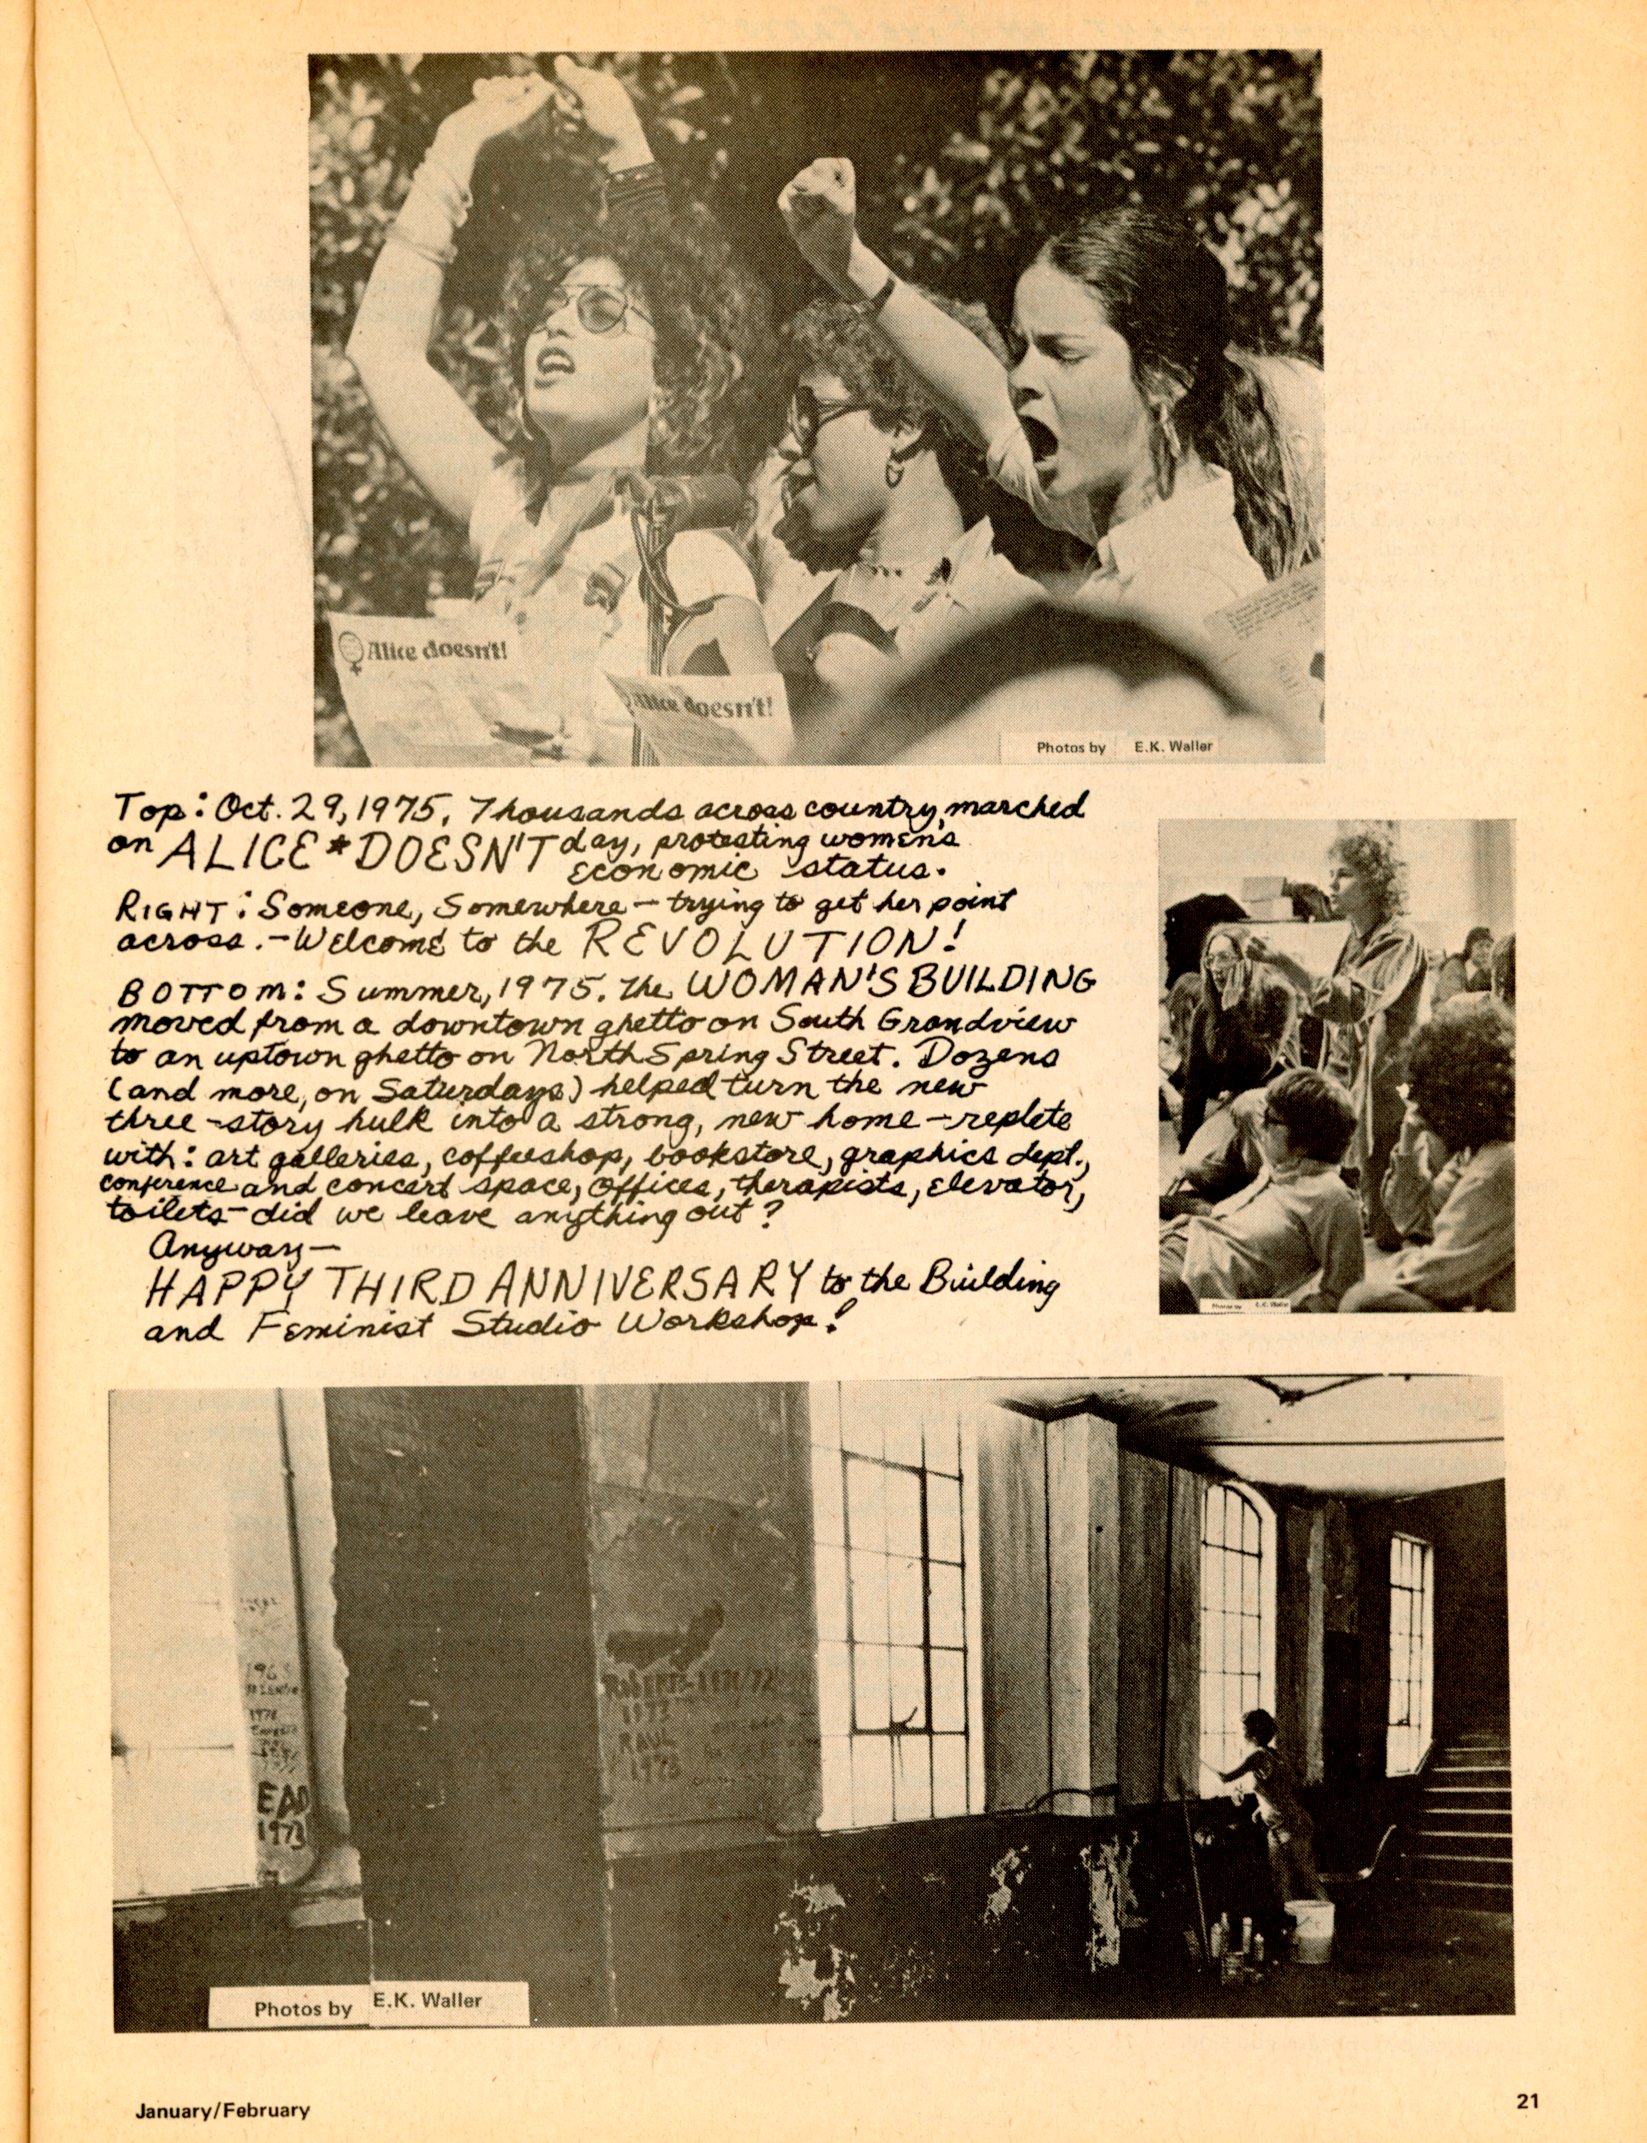 Alice doesn't!
Alice doesn't!
Photos by E.K. Waller
Top: Oct. 29, 1975. Thousands across country, marched
on ALICE*DOESN'T day, protesting women's
economic status.
RIGHT: Someone, Somewhere — trying to get her point
across. — Welcome to the REVOLUTION!
BOTTOM: Summer, 1975. The WOMAN'S BUILDING
moved from a downtown ghetto on South Grandview
to an uptown ghetto on North Spring Street. Dozens
(and more, on Saturdays) helped turn the new
three-story hulk into a strong, new home — replete
with: art galleries, coffeeshop, bookstore, graphics dept.,
conference and concert space, offices, therapists, elevator,
toilets — did we leave anything out?
Anyway —
HAPPY THIRD ANNIVERSARY to the Building
and Feminist Studio Workshop!
Photos by E.K. Waller
1973
RAUL
1973
EAD
1973
Photos by E.K. Waller
January/February
21